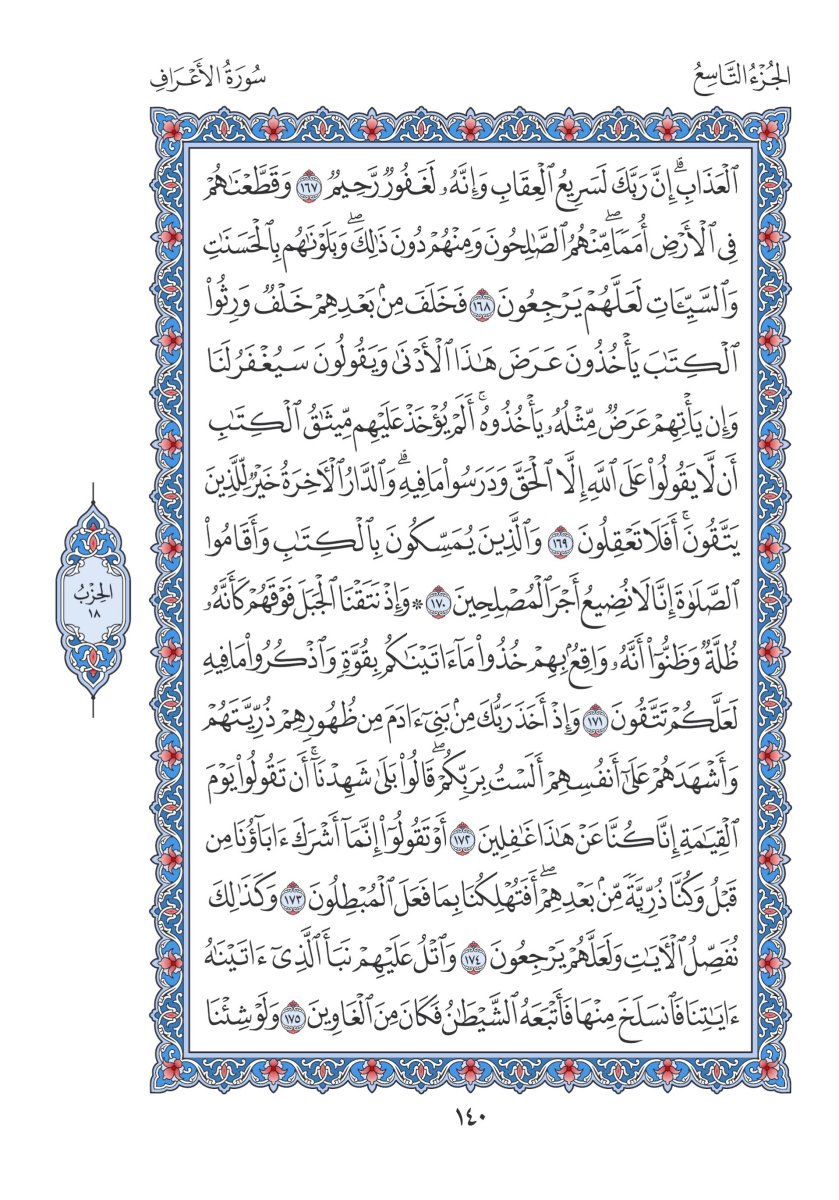 الجُزْءُ التَّاسِعُ
سُورَةُ الأَعْرَافِ
ٱلْعَذَابِۗ إِنَّ رَبَّكَ لَسَرِيعُ ٱلْعِقَابِ وَإِنَّهُۥ لَغَفُورٌ رَّحِيمٌ ۝١٦٧ وَقَطَّعْنَٰهُمْ
فِى ٱلْأَرْضِ أُمَمًاۖ مِّنْهُمُ ٱلصَّٰلِحُونَ وَمِنْهُمْ دُونَ ذَٰلِكَۖ وَبَلَوْنَٰهُم بِٱلْحَسَنَٰتِ
وَٱلسَّيِّـَٔاتِ لَعَلَّهُمْ يَرْجِعُونَ ۝١٦٨ فَخَلَفَ مِنۢ بَعْدِهِمْ خَلْفٌ وَرِثُوا۟
ٱلْكِتَٰبَ يَأْخُذُونَ عَرَضَ هَٰذَا ٱلْأَدْنَىٰ وَيَقُولُونَ سَيُغْفَرُ لَنَا
وَإِن يَأْتِهِمْ عَرَضٌ مِّثْلُهُۥ يَأْخُذُوهُۚ أَلَمْ يُؤْخَذْ عَلَيْهِم مِّيثَٰقُ ٱلْكِتَٰبِ
أَن لَّا يَقُولُوا۟ عَلَى ٱللَّهِ إِلَّا ٱلْحَقَّ وَدَرَسُوا۟ مَا فِيهِۗ وَٱلدَّارُ ٱلْـَٔاخِرَةُ خَيْرٌ لِّلَّذِينَ
يَتَّقُونَۚ أَفَلَا تَعْقِلُونَ ۝١٦٩ وَٱلَّذِينَ يُمَسِّكُونَ بِٱلْكِتَٰبِ وَأَقَامُوا۟
ٱلصَّلَوٰةَ إِنَّا لَا نُضِيعُ أَجْرَ ٱلْمُصْلِحِينَ ۝١٧٠ * وَإِذْ نَتَقْنَا ٱلْجَبَلَ فَوْقَهُمْ كَأَنَّهُۥ
ظُلَّةٌ وَظَنُّوٓا۟ أَنَّهُۥ وَاقِعٌۢ بِهِمْ خُذُوا۟ مَآ ءَاتَيْنَٰكُم بِقُوَّةٍ وَٱذْكُرُوا۟ مَا فِيهِ
لَعَلَّكُمْ تَتَّقُونَ ۝١٧١ وَإِذْ أَخَذَ رَبُّكَ مِنۢ بَنِىٓ ءَادَمَ مِن ظُهُورِهِمْ ذُرِّيَّتَهُمْ
وَأَشْهَدَهُمْ عَلَىٰٓ أَنفُسِهِمْ أَلَسْتُ بِرَبِّكُمْۖ قَالُوا۟ بَلَىٰ شَهِدْنَآۚ أَن تَقُولُوا۟ يَوْمَ
ٱلْقِيَٰمَةِ إِنَّا كُنَّا عَنْ هَٰذَا غَٰفِلِينَ ۝١٧٢ أَوْ تَقُولُوٓا۟ إِنَّمَآ أَشْرَكَ ءَابَآؤُنَا مِن
قَبْلُ وَكُنَّا ذُرِّيَّةً مِّنۢ بَعْدِهِمْۖ أَفَتُهْلِكُنَا بِمَا فَعَلَ ٱلْمُبْطِلُونَ ۝١٧٣ وَكَذَٰلِكَ
نُفَصِّلُ ٱلْـَٔايَٰتِ وَلَعَلَّهُمْ يَرْجِعُونَ ۝١٧٤ وَٱتْلُ عَلَيْهِمْ نَبَأَ ٱلَّذِىٓ ءَاتَيْنَٰهُ
ءَايَٰتِنَا فَٱنسَلَخَ مِنْهَا فَأَتْبَعَهُ ٱلشَّيْطَٰنُ فَكَانَ مِنَ ٱلْغَاوِينَ ۝١٧٥ وَلَوْ شِئْنَا
الحِزْبُ
١٨
١٤٠